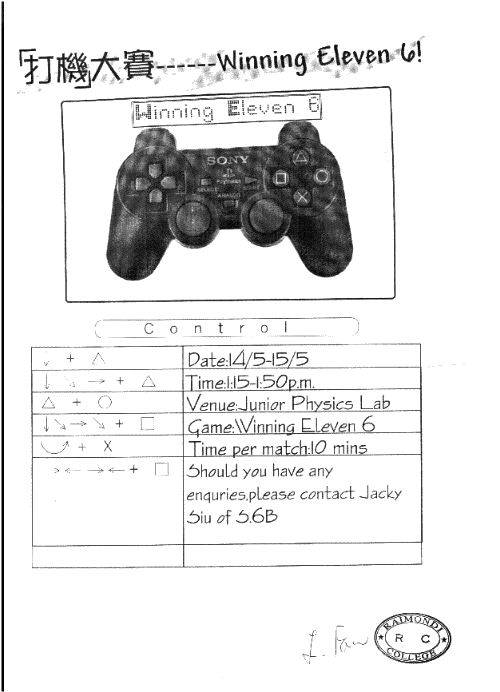 「打機」大賽------Winning Eleven 6!
Winning Eleven 6
SONY
SELECT
ANALOG
Control
↓ + △
Date:14/5-15/5
↓ ↘ → + △
Time:1:15-1:50p.m.
△ + ○
Venue:Junior Physics Lab
↓↘→↘ + □
Game:Winning Eleven 6
+ X
Time per match:10 mins
→← →← + □
Should you have any
enquries,please contact Jacky
Siu of S.6B
RAIMONDI
R C
COLLEGE